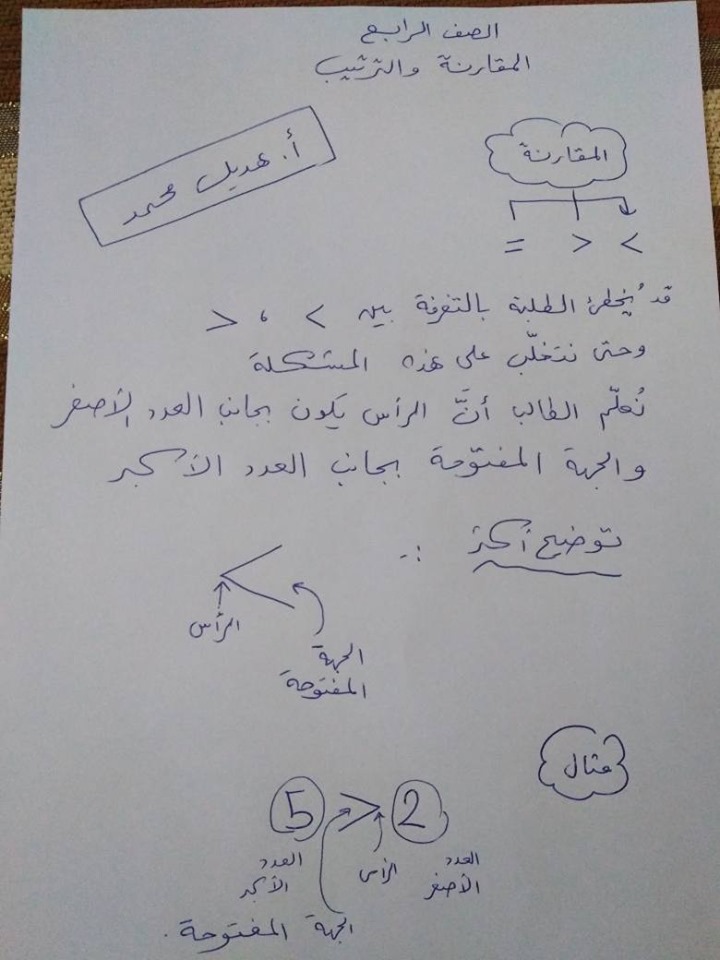 الصف الرابع
المقارنة والترتيب
أ. هديل محمد
المقارنة
= > <
قد يُخطئ الطلبة بالتفرقة بين < ، >
وحتى نتغلّب على هذه المشكلة
نُعلّم الطالب أنَّ الرأس يكون بجانب العدد الأصغر
والجهة المفتوحة بجانب العدد الأكبر
توضيح أكثر :-
<
الرأس
الجهة
المفتوحة
مثال
5 > 2
العدد الأكبر
الرأس
العدد الأصغر
الجهة المفتوحة.